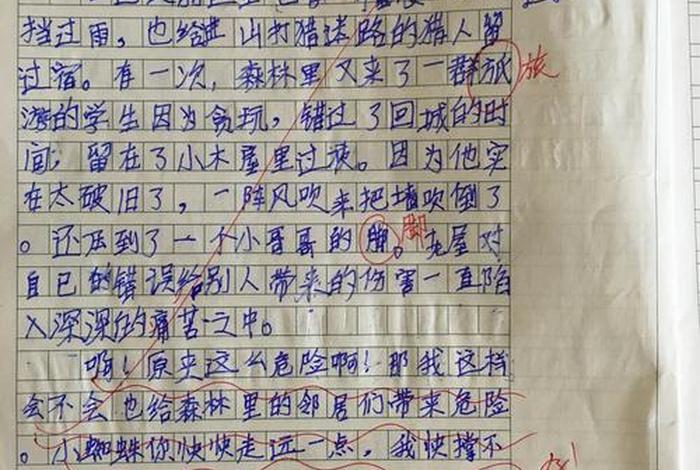 挡过雨，也给进山打猎迷路的猎人留
过宿。有一次，森林里又来了一群旅 旅
游的学生因为贪玩，错过了回城的时
间，留在了小木屋里过夜。因为他实
在太破旧了，一阵风吹来把墙吹倒了
。还压到了一个小哥哥的脚。脚 老屋对
自己的错误给别人带来的伤害一直陷
入深深的痛苦之中。
啊！原来这么危险啊！那我这样
会不会也给森林里的邻居们带来危险
。小蜘蛛你快快走远一点，我快撑不